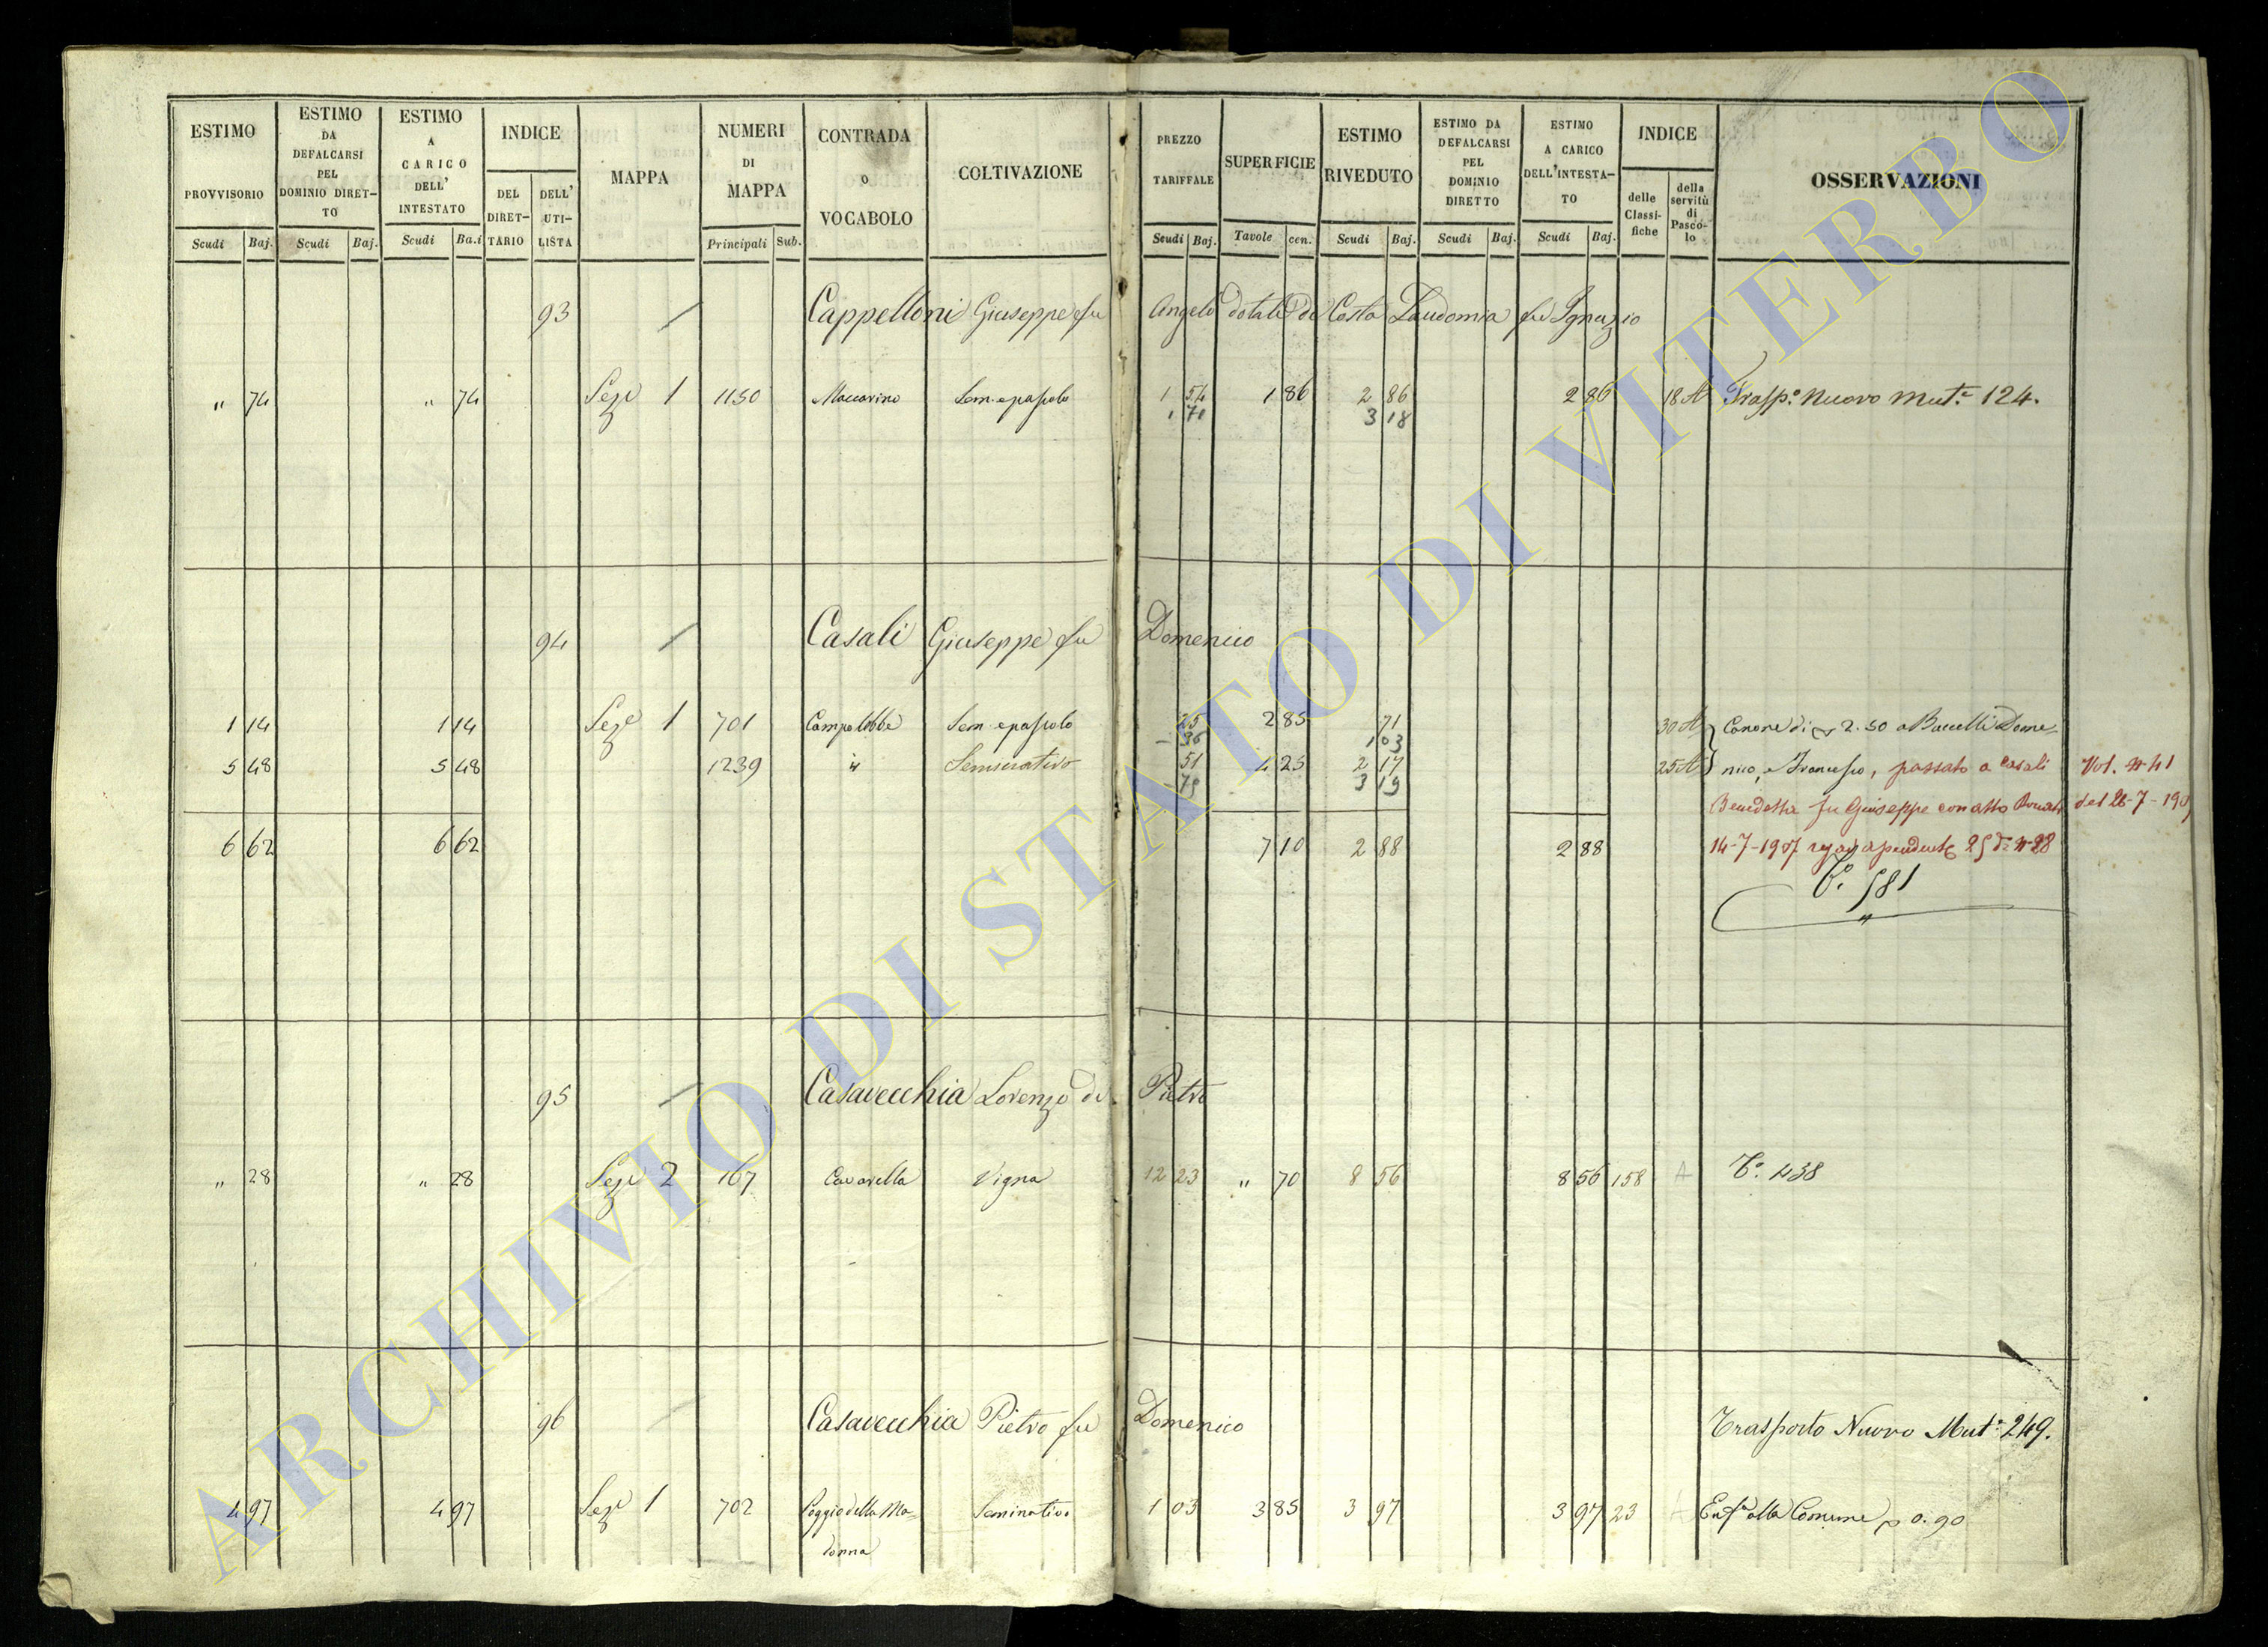 ESTIMO PROVVISORIO Scudi Baj.
ESTIMO DA DEFALCARSI PEL DOMINIO DIRETTO Scudi Baj.
ESTIMO A CARICO DELL' INTESTATO Scudi Ba.i
INDICE DEL DIRETTARIO DELL' UTILISTA
MAPPA
NUMERI DI MAPPA Principali Sub.
CONTRADA O VOCABOLO
COLTIVAZIONE
PREZZO TARIFFALE Scudi Baj.
SUPERFICIE Tavole cen.
ESTIMO RIVEDUTO Scudi Baj.
ESTIMO DA DEFALCARSI PEL DOMINIO DIRETTO Scudi Baj.
ESTIMO A CARICO DELL'INTESTATO Scudi Baj.
INDICE delle Classifiche della servitù di Pascolo
OSSERVAZIONI
93 Cappelloni Giuseppe fu Angelo dotali di Costa Laudomia fu Ignazio
" 74 " 74 Seze 1 1150 Maccarino Sem. e pascolo 1 54 1 86 2 86 2 86 18 A Trasp.o Nuovo Mut.e 124.
1 71 3 18
94 Casali Giuseppe fu Domenico
1 14 1 14 Seze 1 701 Campo Sem. e pascolo 25 2 85 71 30 A Canone di 2.50 a Domenico
36 1 03
5 48 5 48 1239 " Seminativo 51 4 25 2 17 25 A e Francesco, passato a Casali Vol. n 41
75 3 19
Benedetta fu Giuseppe con atto del 26-7-190
6 62 6 62 7 10 2 88 2 88 14-7-1907 n 28
T.o 581
95 Casavecchia Lorenzo di Pietro
" 28 " 28 Seze 2 167 Cavarella Vigna 12 23 " 70 8 56 8 56 158 A T.o 438
96 Casavecchia Pietro fu Domenico Trasporto Nuovo Mut.e 249.
4 97 4 97 Seze 1 702 Poggio della Madonna Seminativo 1 03 3 85 3 97 3 97 23 A alla Comune 0.90
ARCHIVIO DI STATO DI VITERBO